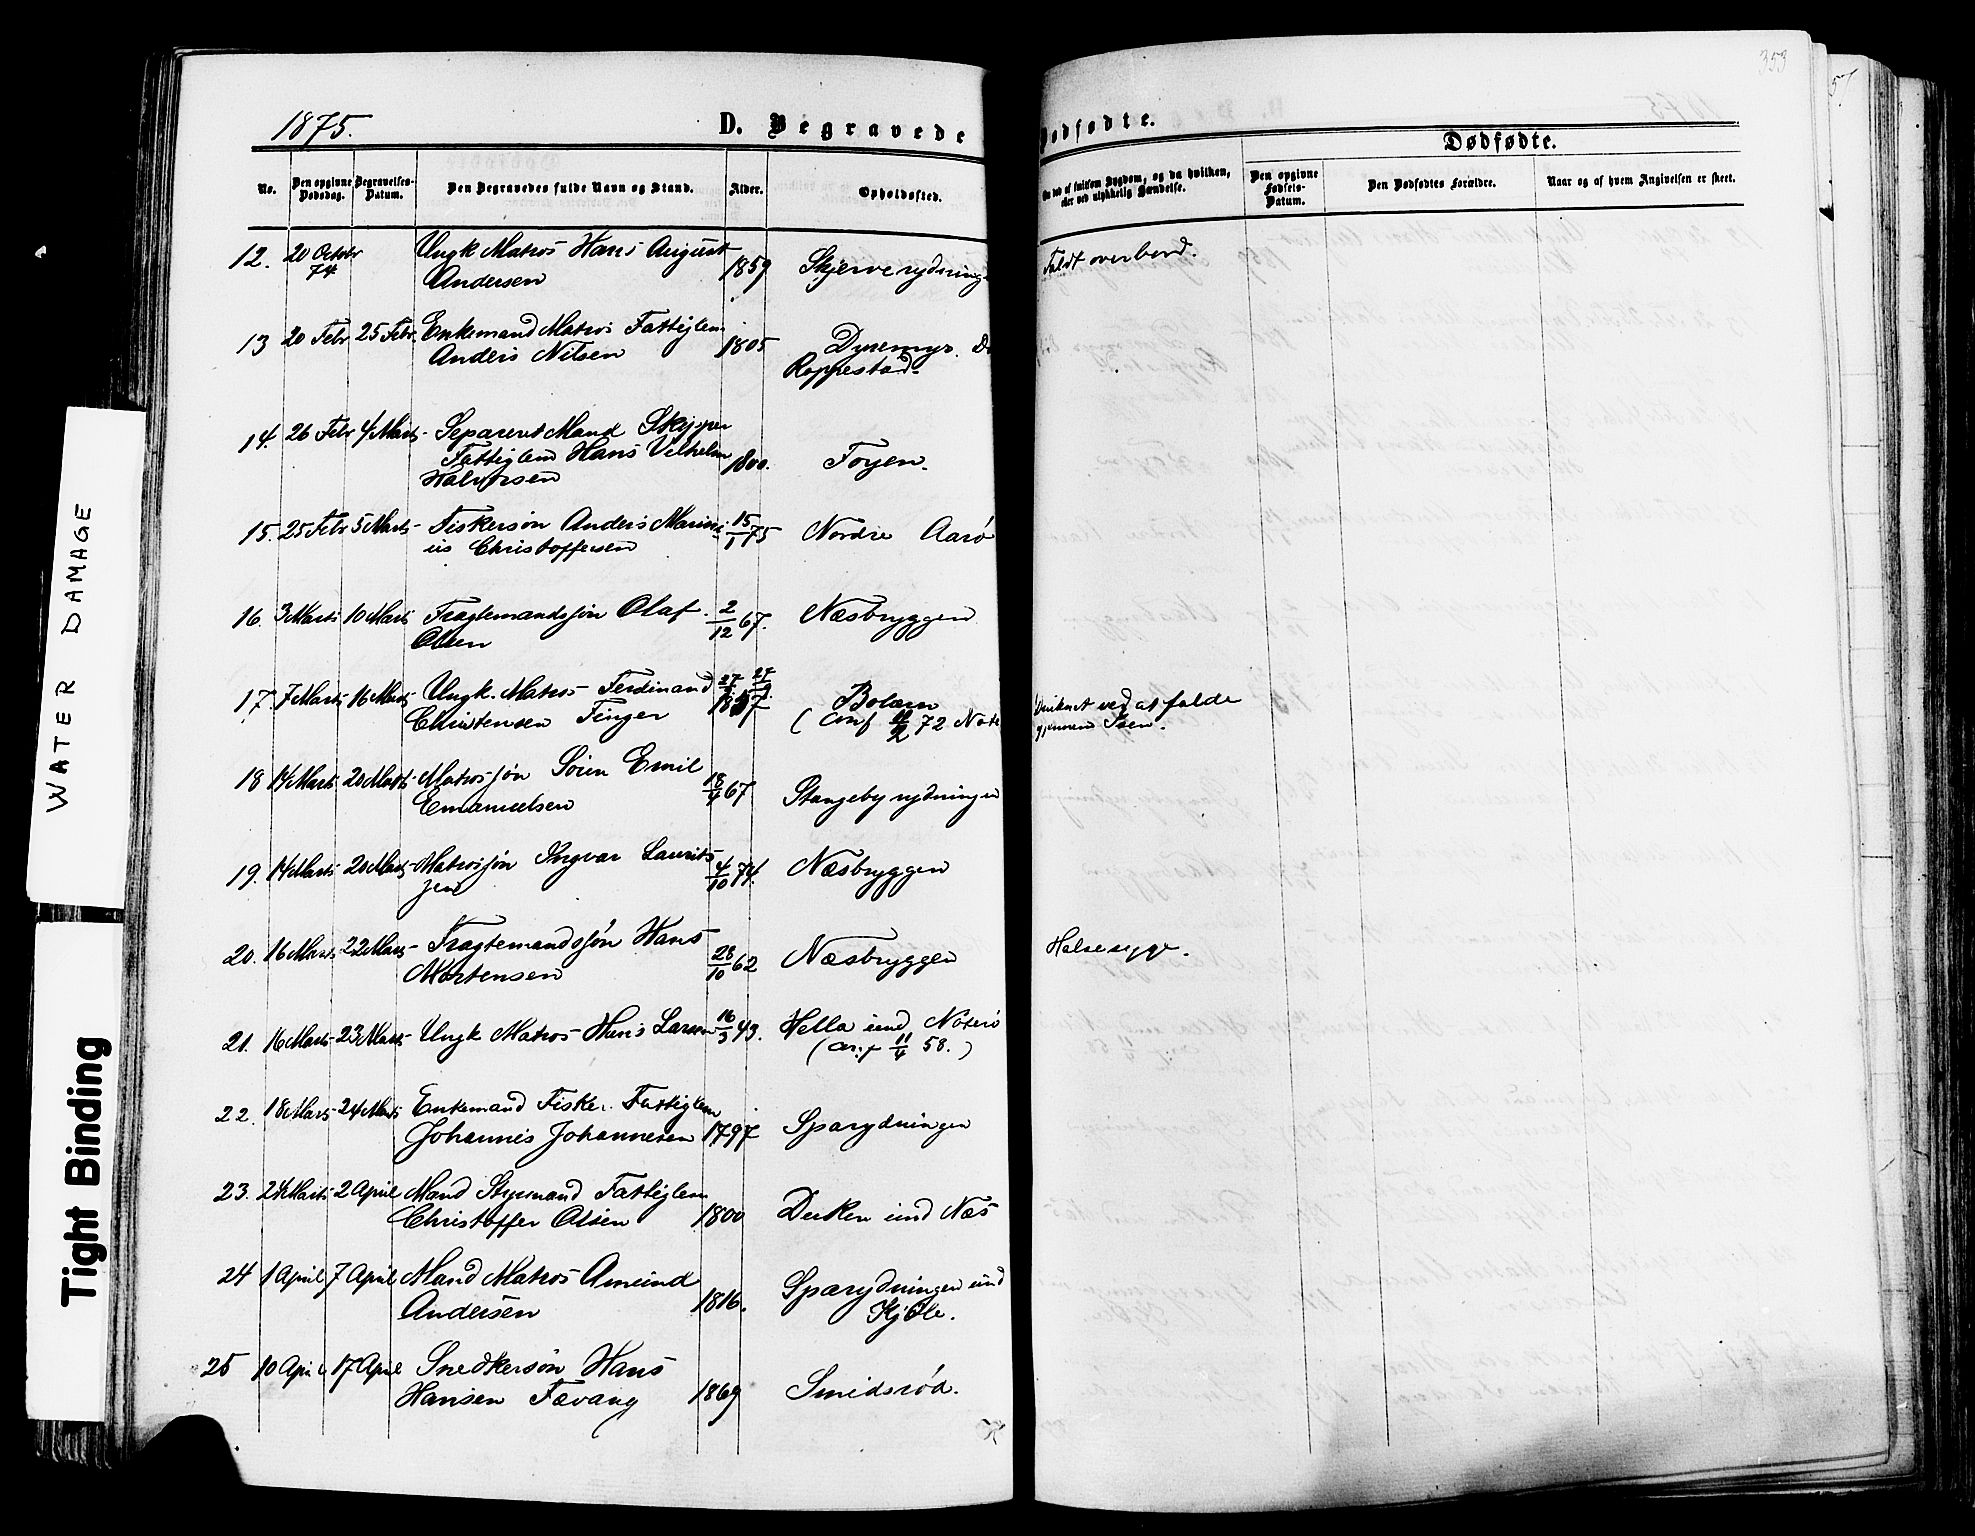 353
57
1875.
D. Begravede
Dødfødte.
Dødfødte.
No.
Den opgivne Dødsdag.
Begravelses-Datum.
Den Begravedes fulde Navn og Stand.
Alder.
Opholdssted.
Om død af smitsom Sygdom, og da hvilken,
eller ved ulykkelig Hændelse.
Den opgivne Fødsels-Datum.
Den Dødfødtes Forældre.
Naar og af hvem Angivelsen er skeet.
12. 20 Octobr 74 Ungk Matros Hans August
Andersen 1859 Skjerverydningen Faldt overbord.
13 20 Febr 25 Febr. Enkemand Matros Fattiglem
Anders Nilsen 1805 Dyremyr.
Roppestad.
14. 26 Febr 4 Marts Separeret Mand Skipper
Fattiglem Hans Vilhelm
Halvorsen 1800. Foyen.
15. 25 Febr 5 Marts Fiskersøn Anders Marini
us Christoffersen 15/1 75 Nordre Aarø
16. 3 Marts 10 Marts Fragtemandssøn Olaf
Olsen 2/12 67. Næsbryggen
17. 7 Marts 16 Marts Ungk. Matros Ferdinand
Christensen Finger 1857 Bolærn
(Conf 72 Nøte Druknet ved at falde
gjennem Isen.
18 14 Marts 20 Marts Matrossøn Søren Emil
Emanuelsen 18/4 67 Stangeby rydningen
19. 14 Marts 20 Marts Matrossøn Ingvar Laurits
sen 4/10 74. Næsbryggen
20. 16 Marts 22 Marts Fragtemandssøn Hans
Mortensen 28/10 62 Næsbryggen Halsesyge.
21. 16 Marts 23 Marts Ungk Matros Hans Larsen 16/3 43. Hella und Nøterø
(Conf 11/4 58.)
22. 18 Marts 24 Marts Enkemand Fisker Fattiglem
Johannes Johannesen 1797 Sparydningen
23. 24 Marts 2 April Mand Styrmand Fattiglem
Christoffer Olsen 1800 Duken und Næs
24 1 April 7 April Mand Matros Amund
Andersen 1816. Sparydningen und
Kjøle.
25 10 April 17 April Snedkersøn Hans
Hansen Tævang 1869 Smidsrød.
WATER DAMAGE
Tight Binding